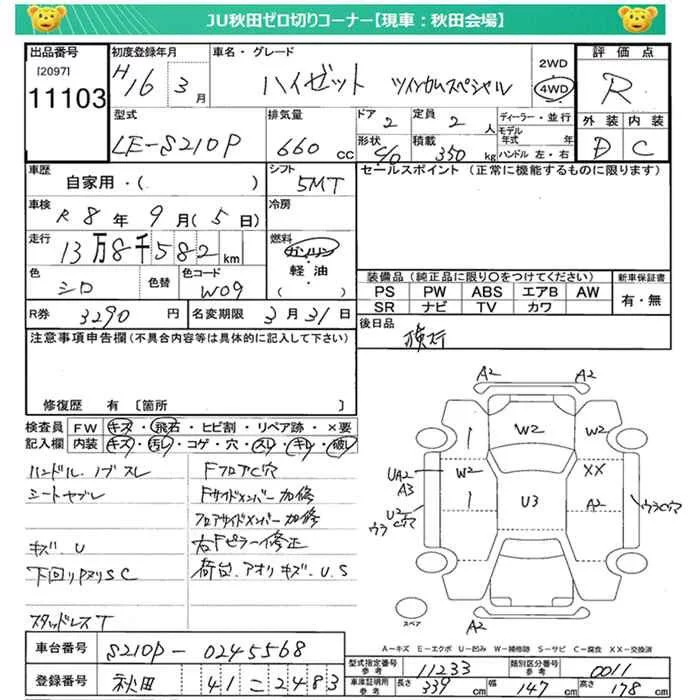 JU秋田ゼロ切りコーナー【現車：秋田会場】
出品番号
[2097]
11103
初度登録年月
H16 3月
車名・グレード
ハイゼット ツインカムスペシャル
2WD
4WD
評価点
R
外装 内装
D C
型式
LE-S210P
排気量
660 cc
ドア
2
形状
C/O
定員
2 人
積載
350 kg
ディーラー・並行
モデル年式 年
ハンドル 左・右
車歴
自家用・( )
シフト
5MT
セールスポイント (正常に機能するものに限ります)
車検
R 8 年 9 月( 5 日)
冷房
走行
13万8千582 km
燃料
ガソリン
軽油
( ・ )
色
シロ
色替
色コード
W09
装備品 (純正品に限り〇をつけてください)
PS PW ABS エアB AW
SR ナビ TV カワ
新車保証書
有・無
R券 3290 円
名変期限 3月31日
後日品
注意事項申告欄(不具合内容等は具体的に記入して下さい)
修復歴 有 〔箇所 〕
検査員記入欄
FW キズ・飛石・ヒビ割・リペア跡・×要
内装 キズ・汚レ・コゲ・穴・スレ・キレ・破レ
ハンドル.ノブ スレ
シートヤブレ
キズ.U
下回りPヌリSC
スタッドレスT
FフロアC穴
Fサイドメンバー加修
フロアサイドメンバー加修
右Fピラー修正
荷台.アオリキズ.U.S
A2
A2
W2
W2
UA2
A3
W2
XX
U3
A2
U2
ウラC穴
ウラC穴
A2
スペア
A-キズ E-エクボ U-凹み W-補修跡 S-サビ C-腐食 XX-交換済
車台番号
S210P-0245568
登録番号
秋田 41 こ 2483
型式指定番号
参考
11233
類別区分番号
参考
0011
車庫証明用
参考
長さ 339 cm
幅 147 cm
高さ 178 cm